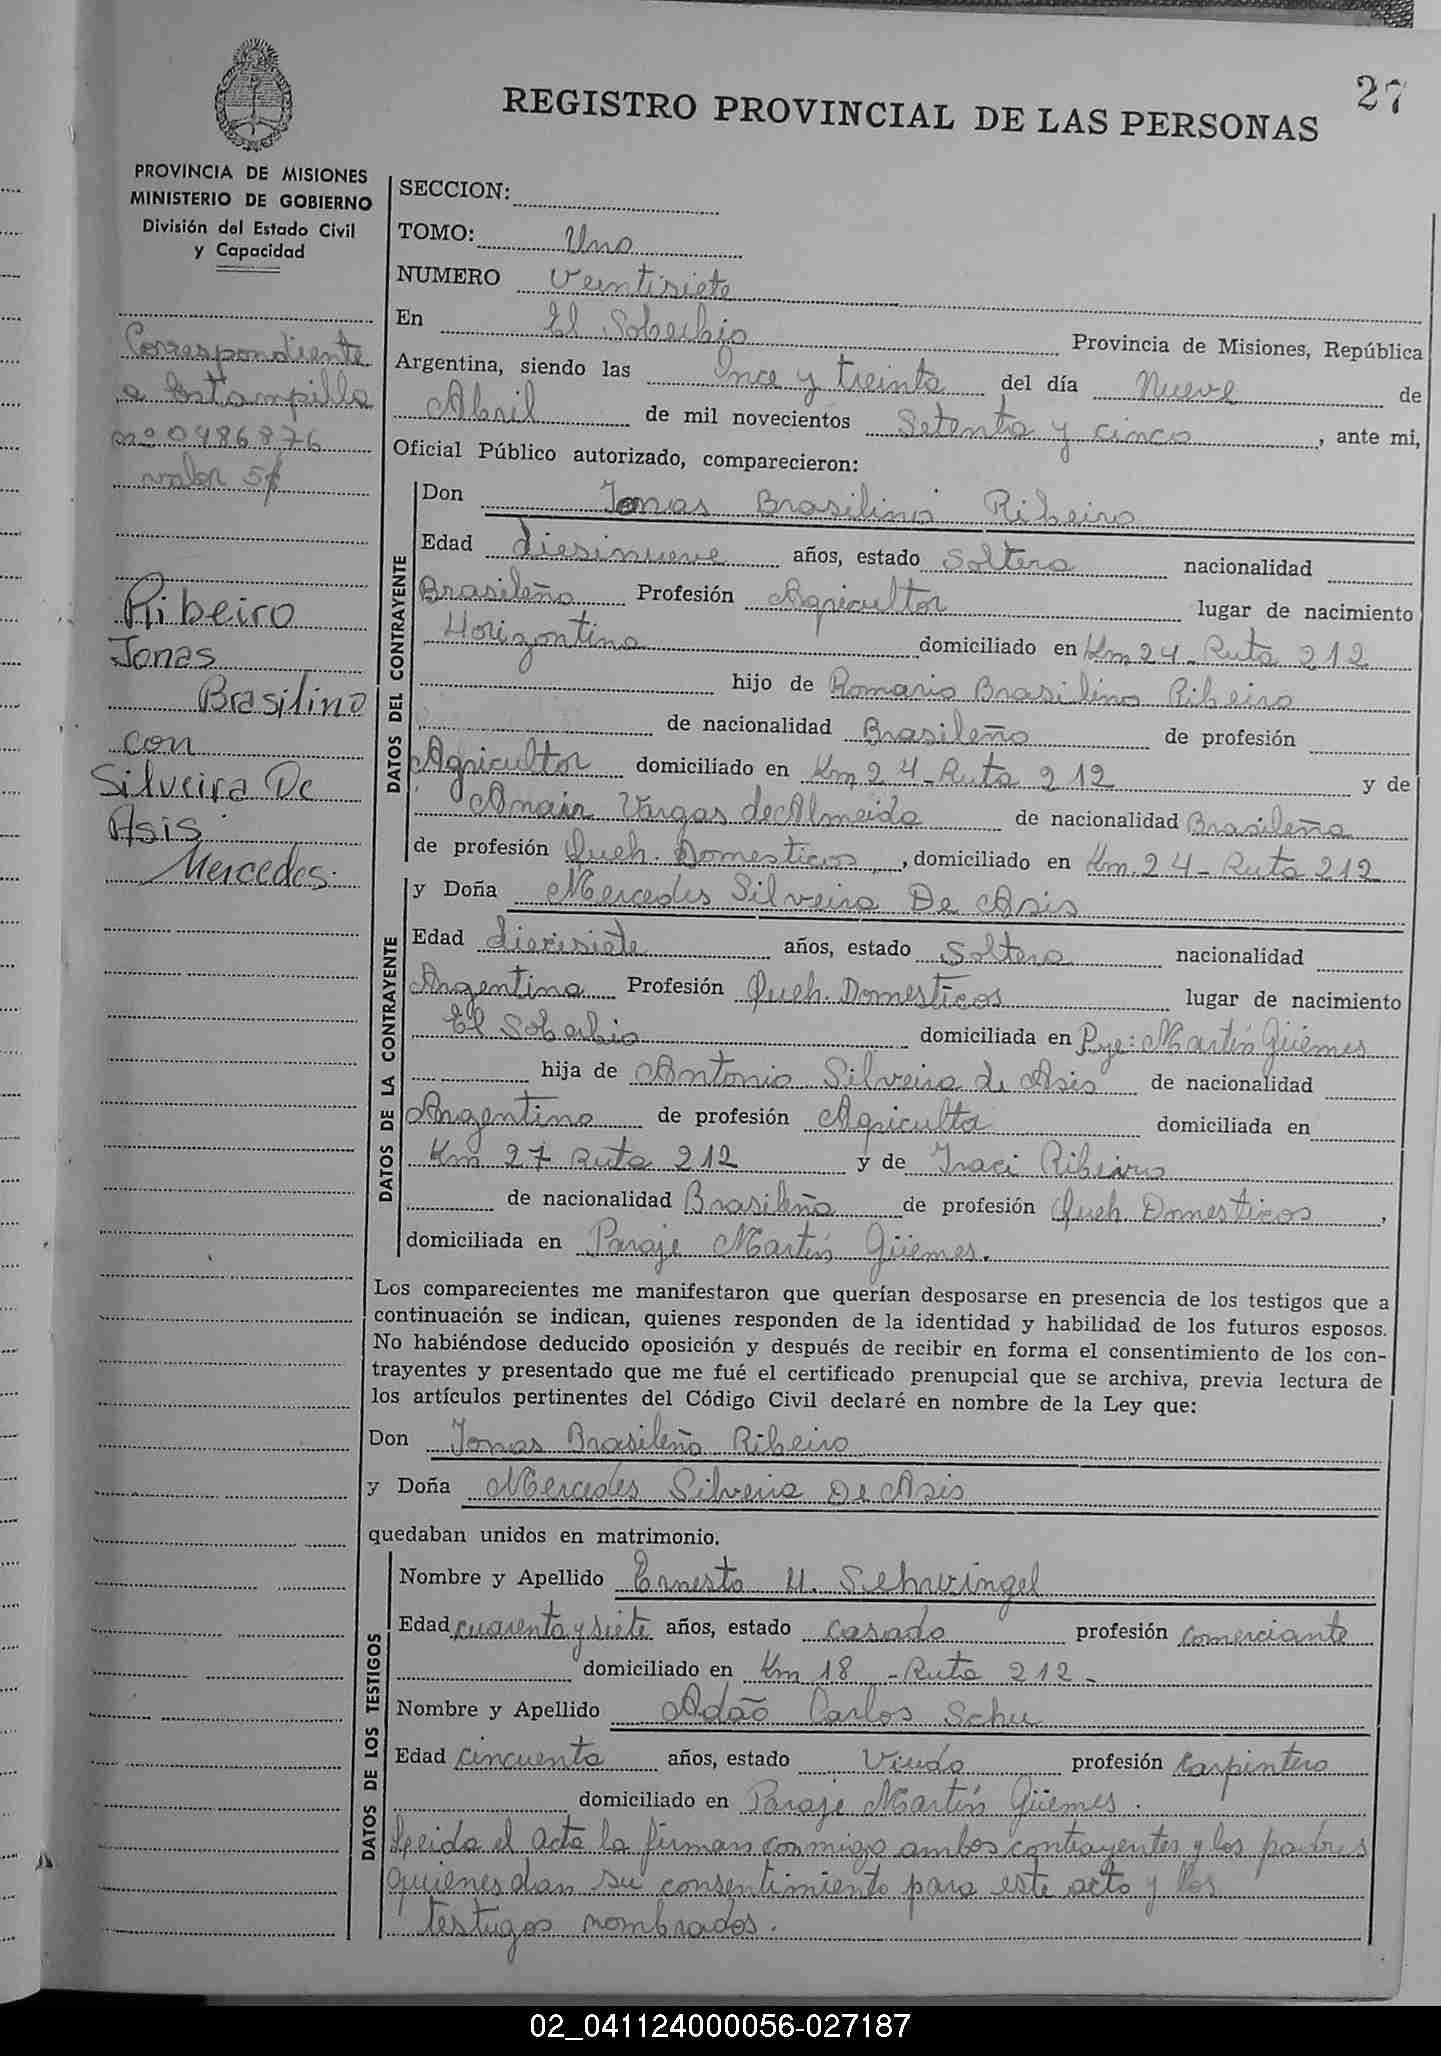 27
REGISTRO PROVINCIAL DE LAS PERSONAS
PROVINCIA DE MISIONES
MINISTERIO DE GOBIERNO
División del Estado Civil
y Capacidad
Correspondiente
a Estampilla
nº 0486876
valor 5$
Ribeiro
Jonas
Brasilino
con
Silveira De
Asis
Mercedes.
SECCION:
TOMO: Uno
NUMERO Veintisiete
En El Soberbio Provincia de Misiones, República
Argentina, siendo las Once y treinta del día Nueve de
Abril de mil novecientos Setenta y cinco, ante mi,
Oficial Público autorizado, comparecieron:
DATOS DEL CONTRAYENTE
Don Jonas Brasilino Ribeiro
Edad diesinueve años, estado Soltero nacionalidad
Brasileño Profesión Agricultor lugar de nacimiento
Horizontina domiciliado en Km 24 - Ruta 212
hijo de Romario Brasilino Ribeiro
de nacionalidad Brasileño de profesión
Agricultor domiciliado en Km 24 - Ruta 212 y de
Anair Vargas de Almeida de nacionalidad Brasileña
de profesión Queh. Domesticos, domiciliado en Km. 24 - Ruta 212
DATOS DE LA CONTRAYENTE
y Doña Mercedes Silveira De Asis
Edad diecisiete años, estado Soltera nacionalidad
Argentina Profesión Queh. Domesticos lugar de nacimiento
El Soberbio domiciliada en Pje: Martín Güemes
hija de Antonio Silveira de Asis de nacionalidad
Argentino de profesión Agriculta domiciliada en
Km 27 Ruta 212 y de Iraci Ribeiro
de nacionalidad Brasileña de profesión Queh. Domesticos,
domiciliada en Paraje Martín Güemes.
Los comparecientes me manifestaron que querían desposarse en presencia de los testigos que a
continuación se indican, quienes responden de la identidad y habilidad de los futuros esposos.
No habiéndose deducido oposición y después de recibir en forma el consentimiento de los con-
trayentes y presentado que me fué el certificado prenupcial que se archiva, previa lectura de
los artículos pertinentes del Código Civil declaré en nombre de la Ley que:
Don Jonas Brasileño Ribeiro
y Doña Mercedes Silveria De Asis
quedaban unidos en matrimonio.
DATOS DE LOS TESTIGOS
Nombre y Apellido Ernesto U. Schwingel
Edad cuarenta y siete años, estado casado profesión comerciante
domiciliado en Km 18 - Ruta 212 -
Nombre y Apellido Adão Carlos Schu
Edad cincuenta años, estado Viudo profesión Carpintero
domiciliado en Paraje Martín Güemes.
Leida el acta la firman conmigo ambos contrayentes y los padres
quienes dan su consentimiento para este acto y los
testigos nombrados.
02_041124000056-027187